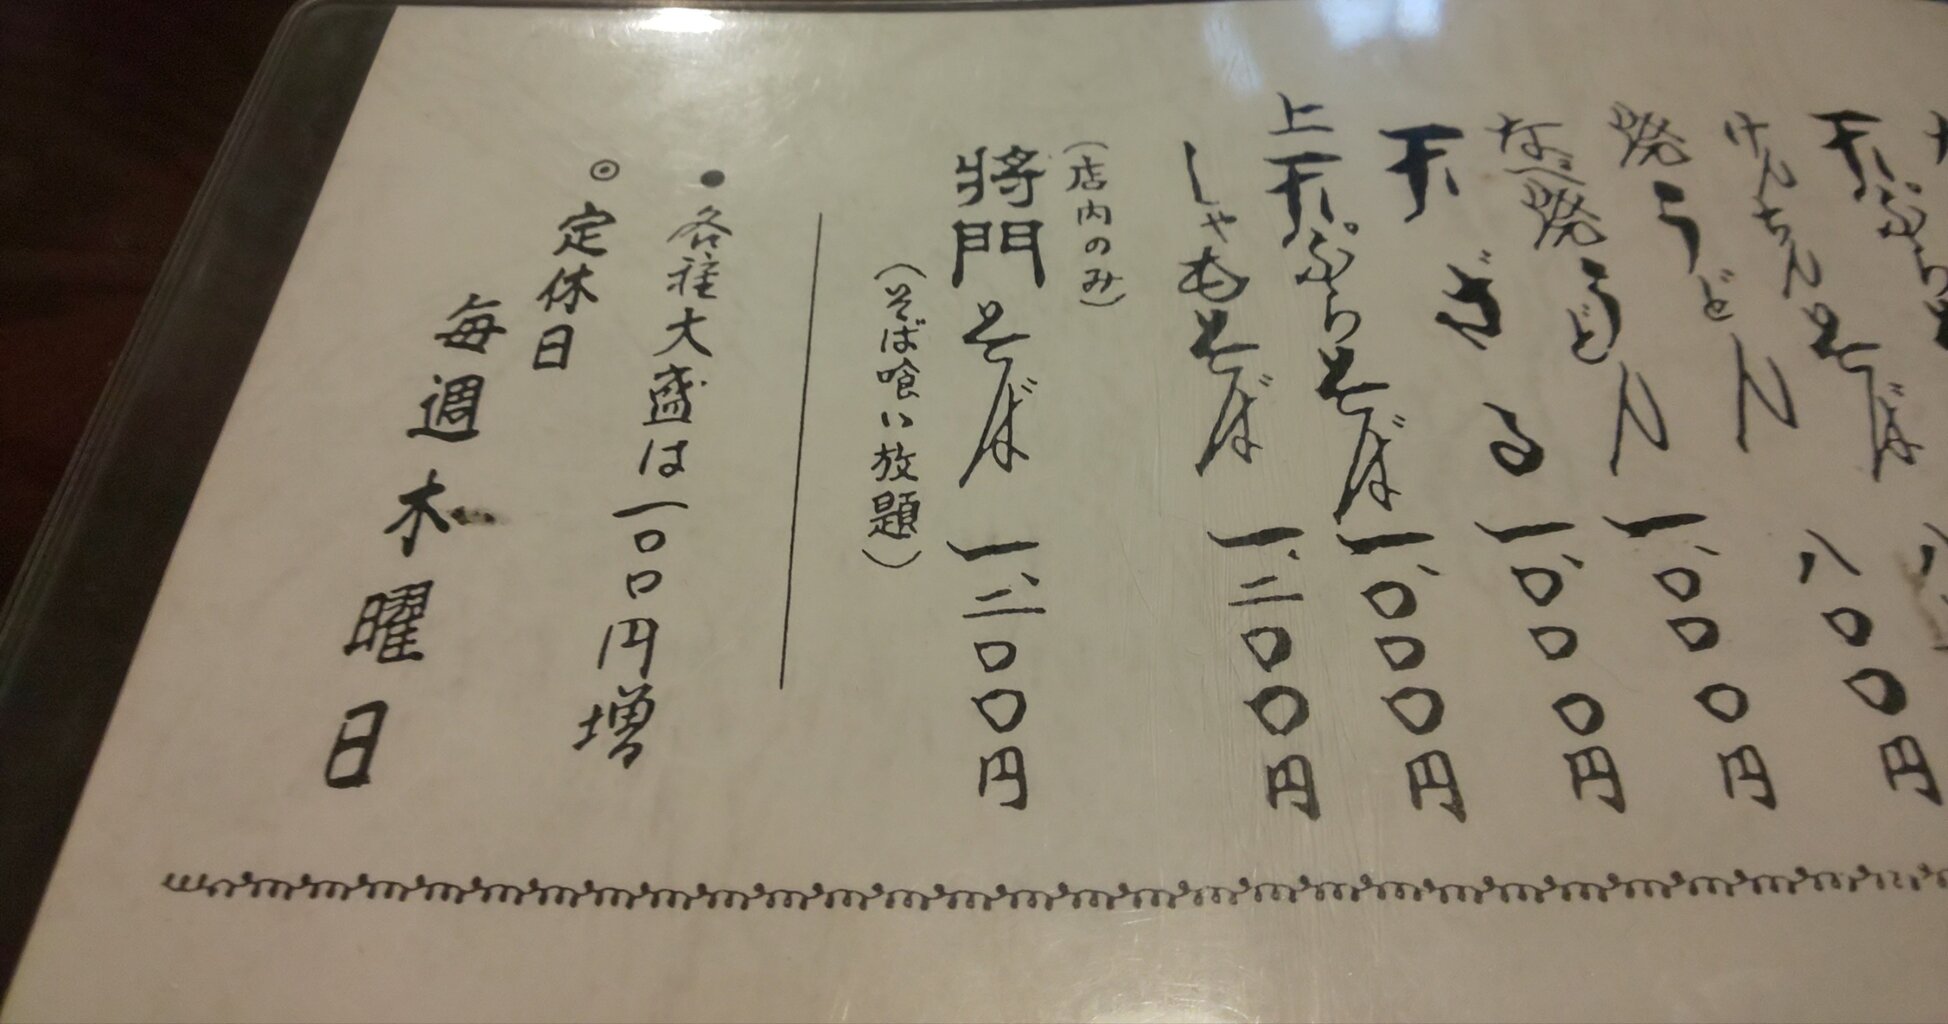 天ぷらそ
けんちんそば 八
焼うどん 八〇〇円
なべ焼うどん 一、〇〇〇円
天ざる 一、〇〇〇円
上天ぷらそば 一、〇〇〇円
しゃもそば 一、二〇〇円
(店内のみ)
将門そば 一、二〇〇円
(そば喰い放題)
●各種大盛は一〇〇円増
◎定休日
毎週木曜日